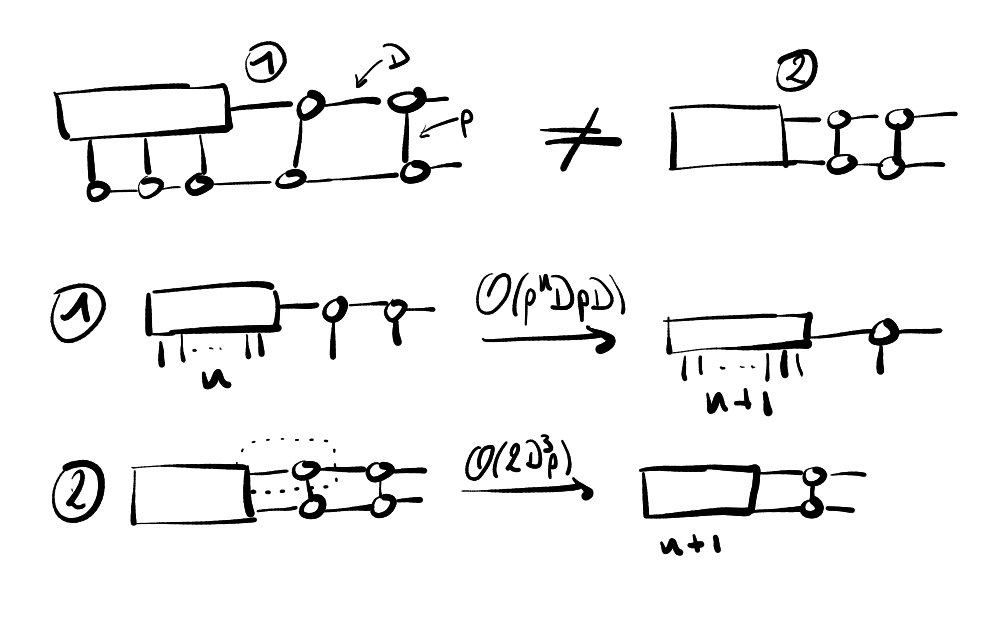 ① D ②
p
≠
① O(pⁿDpD)
n n+1
② O(2D³p)
n+1